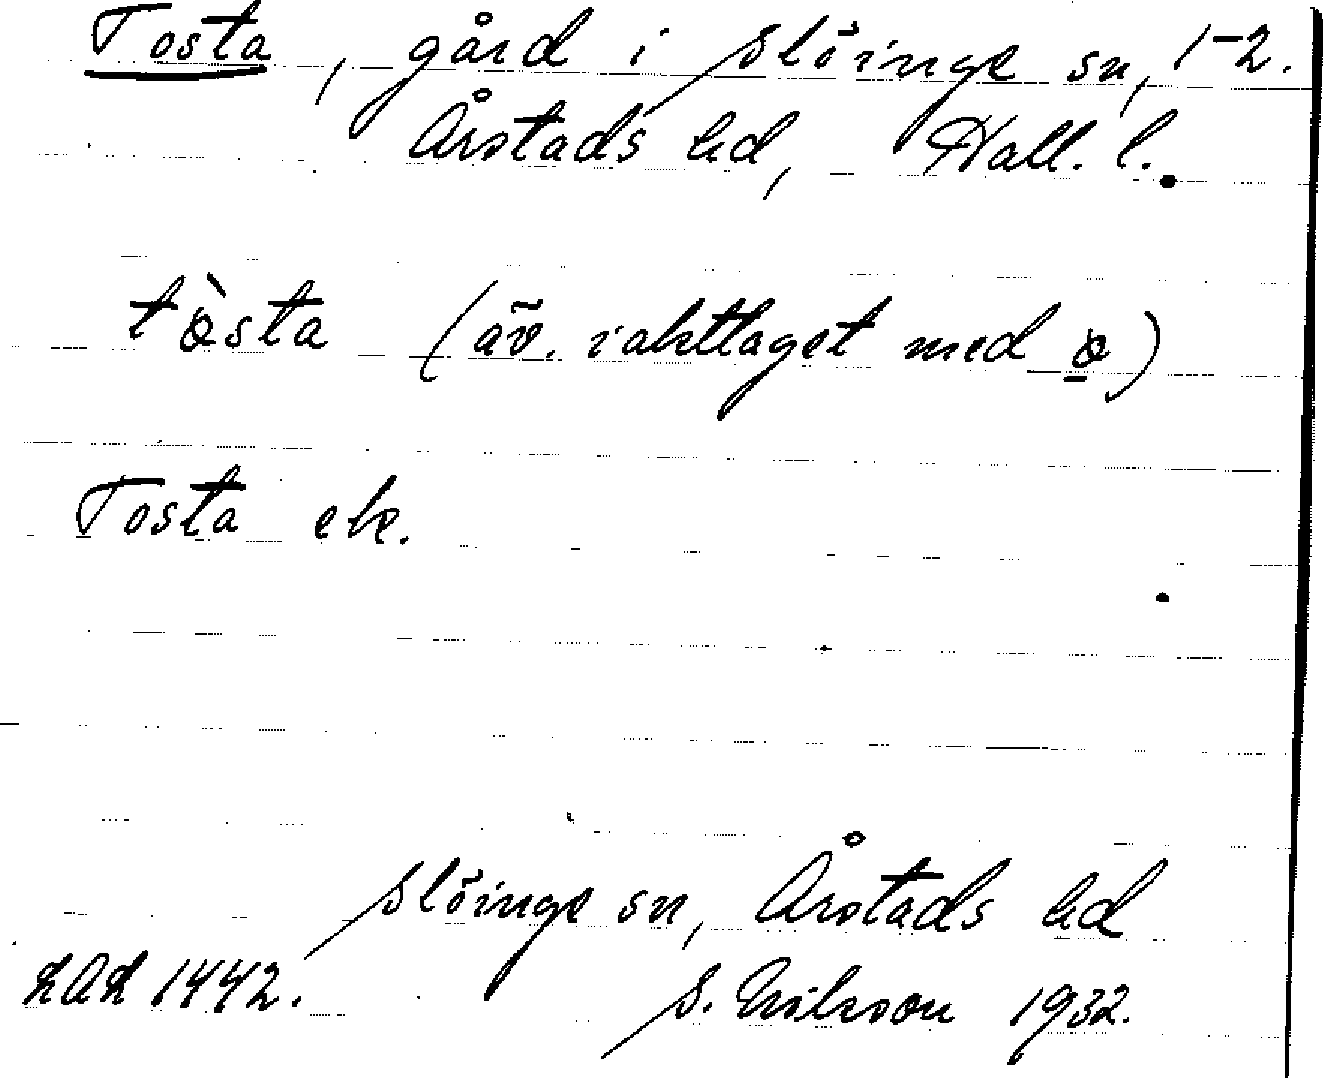 Tosta, gård i Slöinge sn, 1-2.
Årstads hd, Hall. l.
tòsta (äv. iakttaget med o)
Tosta ek.
Slöinge sn, Årstads hd
LAL 1442. S. Nilsson 1932.